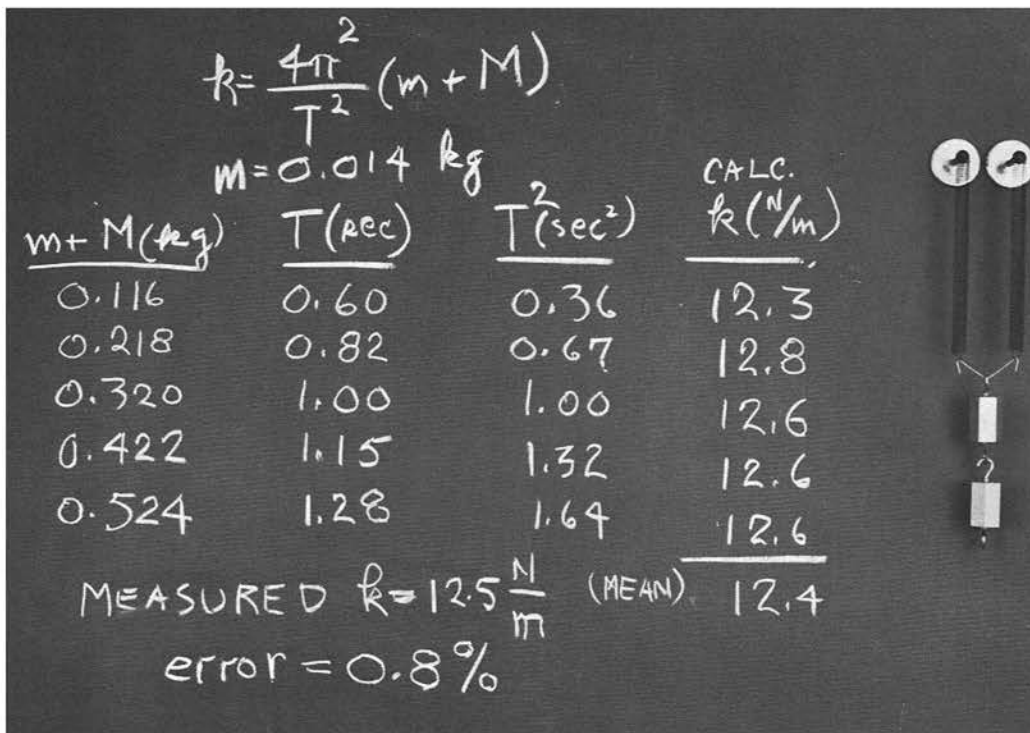 k = 4π²/T² (m + M)
m = 0.014 kg
CALC.
m + M (kg) T (sec) T² (sec²) k (N/m)
0.116 0.60 0.36 12.3
0.218 0.82 0.67 12.8
0.320 1.00 1.00 12.6
0.422 1.15 1.32 12.6
0.524 1.28 1.64 12.6
MEASURED k = 12.5 N/m (MEAN) 12.4
error = 0.8%